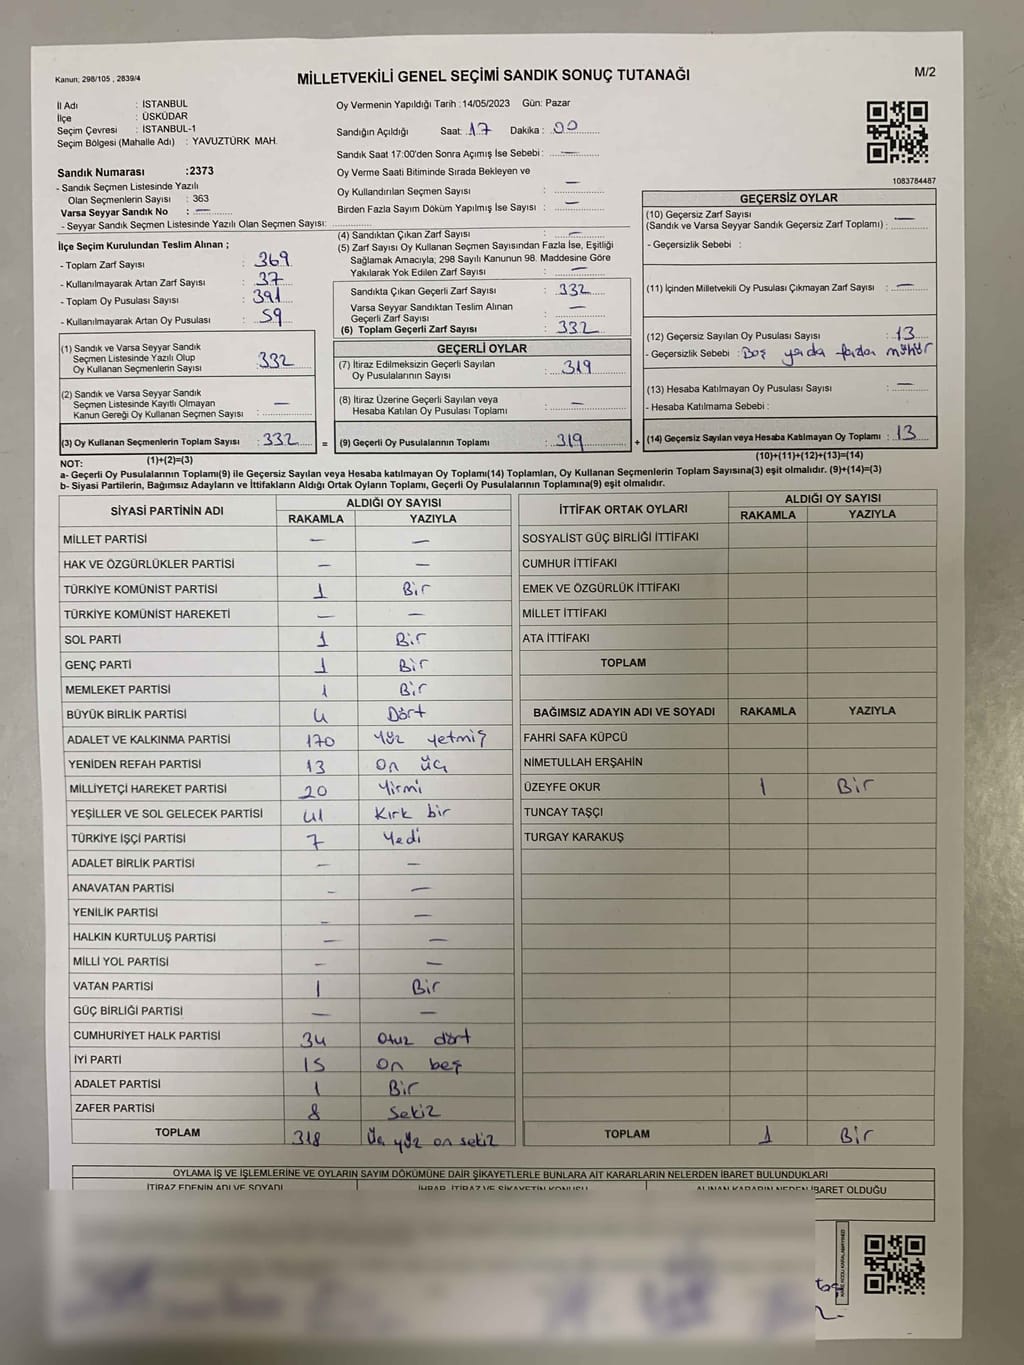 Kanun, 298/105 ; 2839/4
MİLLETVEKİLİ GENEL SEÇİMİ SANDIK SONUÇ TUTANAĞI
M/2
İl Adı : İSTANBUL
İlçe : ÜSKÜDAR
Seçim Çevresi : İSTANBUL-1
Seçim Bölgesi (Mahalle Adı) : YAVUZTÜRK MAH.
Sandık Numarası :2373
- Sandık Seçmen Listesinde Yazılı
Olan Seçmenlerin Sayısı : 363
Varsa Seyyar Sandık No : —
- Seyyar Sandık Seçmen Listesinde Yazılı Olan Seçmen Sayısı:
Oy Vermenin Yapıldığı Tarih :14/05/2023 Gün: Pazar
Sandığın Açıldığı Saat: 17 Dakika : 00
Sandık Saat 17:00'den Sonra Açımış İse Sebebi : —
Oy Verme Saati Bitiminde Sırada Bekleyen ve
Oy Kullandırılan Seçmen Sayısı : —
Birden Fazla Sayım Döküm Yapılmış İse Sayısı : —
1083784487
İlçe Seçim Kurulundan Teslim Alınan ;
- Toplam Zarf Sayısı : 369
- Kullanılmayarak Artan Zarf Sayısı : 37
- Toplam Oy Pusulası Sayısı : 391
- Kullanılmayarak Artan Oy Pusulası : 59
(1) Sandık ve Varsa Seyyar Sandık
Seçmen Listesinde Yazılı Olup
Oy Kullanan Seçmenlerin Sayısı : 332
(2) Sandık ve Varsa Seyyar Sandık
Seçmen Listesinde Kayıtlı Olmayan
Kanun Gereği Oy Kullanan Seçmen Sayısı : —
(3) Oy Kullanan Seçmenlerin Toplam Sayısı : 332
(1)+(2)=(3)
(4) Sandıktan Çıkan Zarf Sayısı : —
(5) Zarf Sayısı Oy Kullanan Seçmen Sayısından Fazla İse, Eşitliği
Sağlamak Amacıyla; 298 Sayılı Kanunun 98. Maddesine Göre
Yakılarak Yok Edilen Zarf Sayısı : —
Sandıkta Çıkan Geçerli Zarf Sayısı : 332
Varsa Seyyar Sandıktan Teslim Alınan
Geçerli Zarf Sayısı : —
(6) Toplam Geçerli Zarf Sayısı : 332
GEÇERLİ OYLAR
(7) İtiraz Edilmeksizin Geçerli Sayılan
Oy Pusulalarının Sayısı : 319
(8) İtiraz Üzerine Geçerli Sayılan veya
Hesaba Katılan Oy Pusulası Toplamı : —
= (9) Geçerli Oy Pusulalarının Toplamı : 319 +
GEÇERSİZ OYLAR
(10) Geçersiz Zarf Sayısı
(Sandık ve Varsa Seyyar Sandık Geçersiz Zarf Toplamı) : —
- Geçersizlik Sebebi :
(11) İçinden Milletvekili Oy Pusulası Çıkmayan Zarf Sayısı : —
(12) Geçersiz Sayılan Oy Pusulası Sayısı : 13
- Geçersizlik Sebebi : Boş yada fazla mühür
(13) Hesaba Katılmayan Oy Pusulası Sayısı : —
- Hesaba Katılmama Sebebi :
(14) Geçersiz Sayılan veya Hesaba Katılmayan Oy Toplamı : 13
(10)+(11)+(12)+(13)=(14)
NOT:
a- Geçerli Oy Pusulalarının Toplamı(9) ile Geçersiz Sayılan veya Hesaba katılmayan Oy Toplamı(14) Toplamları, Oy Kullanan Seçmenlerin Toplam Sayısına(3) eşit olmalıdır. (9)+(14)=(3)
b- Siyasi Partilerin, Bağımsız Adayların ve İttifakların Aldığı Ortak Oyların Toplamı, Geçerli Oy Pusulalarının Toplamına(9) eşit olmalıdır.
SİYASİ PARTİNİN ADI ALDIĞI OY SAYISI
RAKAMLA YAZIYLA
MİLLET PARTİSİ — —
HAK VE ÖZGÜRLÜKLER PARTİSİ — —
TÜRKİYE KOMÜNİST PARTİSİ 1 Bir
TÜRKİYE KOMÜNİST HAREKETİ — —
SOL PARTİ 1 Bir
GENÇ PARTİ 1 Bir
MEMLEKET PARTİSİ 1 Bir
BÜYÜK BİRLİK PARTİSİ 4 Dört
ADALET VE KALKINMA PARTİSİ 170 Yüz yetmiş
YENİDEN REFAH PARTİSİ 13 On üç
MİLLİYETÇİ HAREKET PARTİSİ 20 Yirmi
YEŞİLLER VE SOL GELECEK PARTİSİ 41 Kırk bir
TÜRKİYE İŞÇİ PARTİSİ 7 Yedi
ADALET BİRLİK PARTİSİ — —
ANAVATAN PARTİSİ — —
YENİLİK PARTİSİ — —
HALKIN KURTULUŞ PARTİSİ — —
MİLLİ YOL PARTİSİ — —
VATAN PARTİSİ 1 Bir
GÜÇ BİRLİĞİ PARTİSİ — —
CUMHURİYET HALK PARTİSİ 34 Otuz dört
İYİ PARTİ 15 On beş
ADALET PARTİSİ 1 Bir
ZAFER PARTİSİ 8 Sekiz
TOPLAM 318 Üç yüz on sekiz
İTTİFAK ORTAK OYLARI ALDIĞI OY SAYISI
RAKAMLA YAZIYLA
SOSYALİST GÜÇ BİRLİĞİ İTTİFAKI
CUMHUR İTTİFAKI
EMEK VE ÖZGÜRLÜK İTTİFAKI
MİLLET İTTİFAKI
ATA İTTİFAKI
TOPLAM
BAĞIMSIZ ADAYIN ADI VE SOYADI RAKAMLA YAZIYLA
FAHRİ SAFA KÜPCÜ
NİMETULLAH ERŞAHİN
ÜZEYFE OKUR 1 Bir
TUNCAY TAŞÇI
TURGAY KARAKUŞ
TOPLAM 1 Bir
OYLAMA İŞ VE İŞLEMLERİNE VE OYLARIN SAYIM DÖKÜMÜNE DAİR ŞİKAYETLERLE BUNLARA AİT KARARLARIN NELERDEN İBARET BULUNDUKLARI
İTİRAZ EDENİN ADI VE SOYADI İHBAR, İTİRAZ VE ŞİKAYETİN KONUSU ALINAN KARARIN NEDEN İBARET OLDUĞU